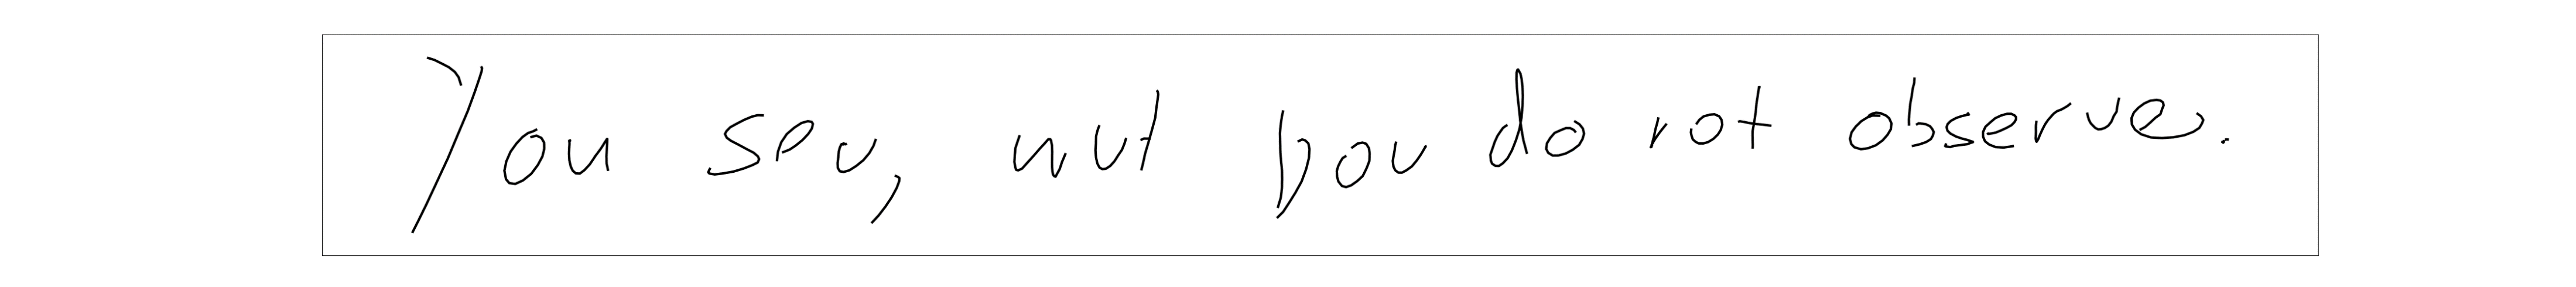 You see, but you do not observe.